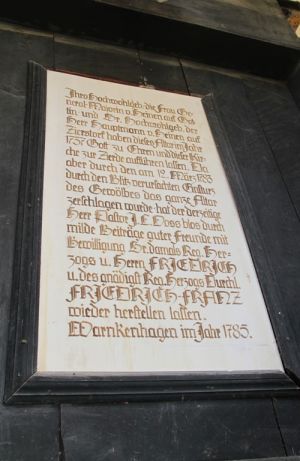 Ihro Hochwohlgeb. die Frau Ge-
neral-Majorin v. Heinen auf Gös
lin und Sr. Hochwohlgeb. der
Herr Hauptmann v. Heinen auf
Zierstorf haben diesen Altar im Jahr
1757 Gott zu Ehren und dieser Kir
che zur Zierde aufführen lassen. Da
aber durch den am 12. März 1783
durch den Blitz verursachten Einsturz
des Gewölbes das ganze Altar
zerschlagen wurde hat der derzeitige
Herr Pastor J. C. Voss blos durch
milde Beiträge guter Freunde mit
Bewilligung Sr. damals Reg. Her-
zogs u. Herrn FRIEDRICH
u. des gnädigst Reg. Herzogs Durchl.
FRIEDRICH-FRANZ
wieder herstellen lassen.
Warnkenhagen im Jahr 1785.